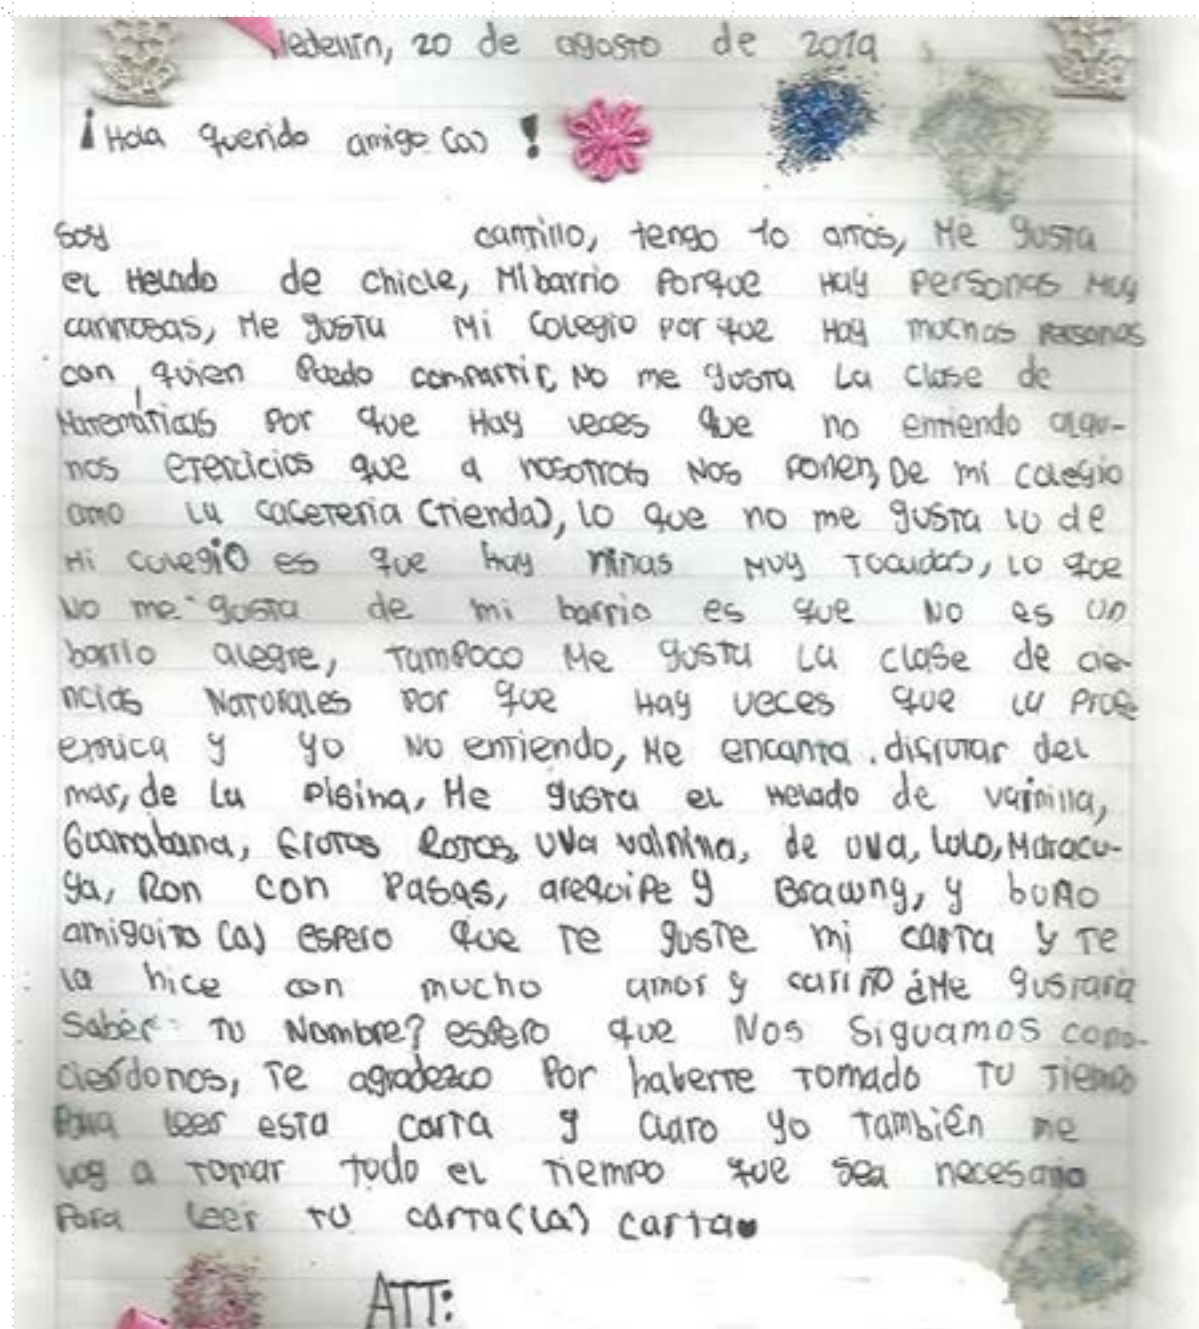 Medellín, 20 de agosto de 2019
¡Hola querido amigo (a)!
Soy carrillo, tengo 10 años, Me gusta
el Helado de chicle, Mi barrio Porque Hay Personas Muy
cariñosas, Me gusta Mi Colegio Por que Hay muchas Personas
con quien Puedo compartir, No me gusta La Clase de
Matemáticas Por que Hay veces que no entiendo algu-
nos ejercicios que a nosotros Nos Ponen, De mi colegio
amo la cafeteria (tienda), Lo que no me gusta lo de
Mi colegio es que hay niñas Muy Tocadas, Lo que
No me gusta de mi barrio es que No es un
barrio alegre, Tampoco Me gusta La clase de cie-
ncias Naturales Por que Hay veces que la Profe
explica y yo No entiendo, Me encanta disfrutar del
mar, de la Pisina, Me gusta el Helado de vainilla,
Guanabana, Frutos Rojos, Uva vainina, de uva, Lulo, Maracu-
ya, Ron con Pasas, arequipe y Brawny, y bueno
amiguito (a) espero que Te guste mi carta y Te
la hice con mucho amor y cariño ¿Me gustaria
Saber Tu Nombre? espero que Nos Siguamos cono-
ciendonos, Te agradezco Por haberte Tomado Tu Tiempo
Para leer esta carta y Claro yo También me
voy a Tomar todo el Tiempo que sea necesario
Para leer Tu carta(la) carta
ATT: